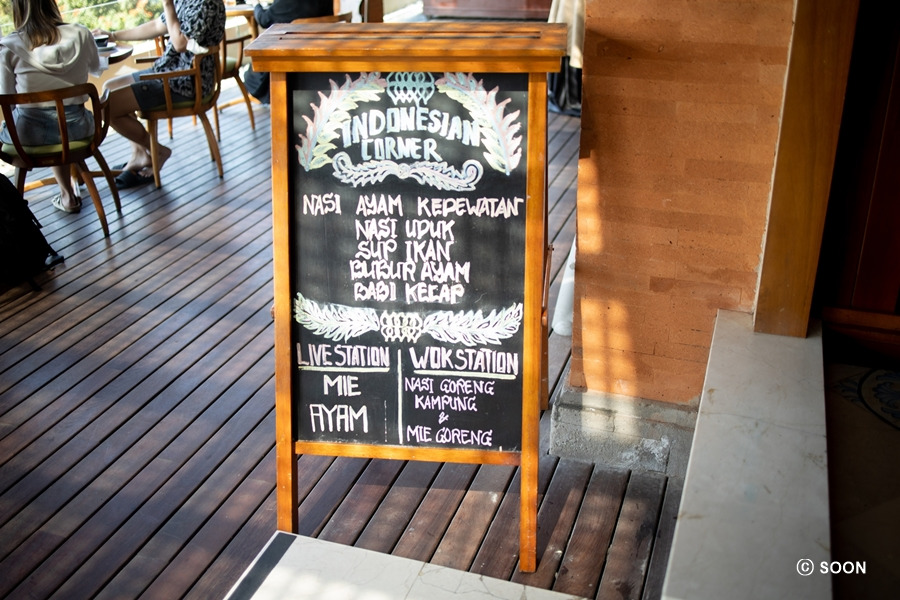 INDONESIAN
CORNER
NASI AYAM KEDEWATAN
NASI UDUK
SUP IKAN
BUBUR AYAM
BABI KECAP
LIVE STATION
MIE
AYAM
WOK STATION
NASI GORENG
KAMPUNG
&
MIE GORENG
© SOON